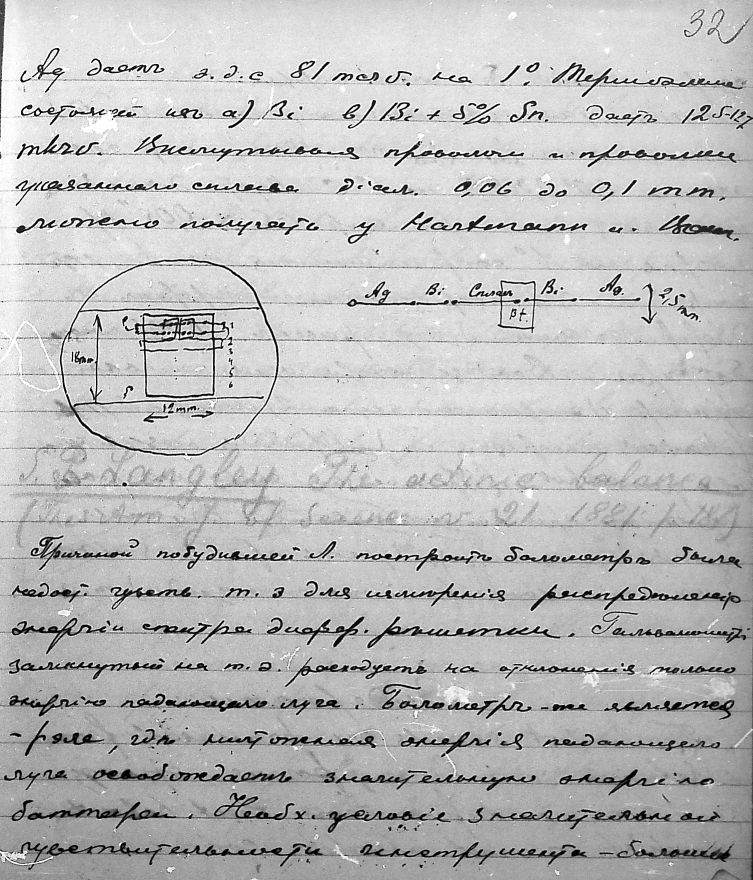 32
Ag даетъ э.д.с 81 mсrо. на 1°. Термоэлеме
состоящій изъ a) Bi b) Bi + 5% Sn. даетъ 125-127
mkrо. Висмутовыя проволоки и проволоки
указаннаго сплава діам. 0,06 до 0,1 mm.
можно получать у Hartmann u. Braun.
Ag Bi Сплавъ Bi Ag. 2,5 mm.
Pt.
18mm
1
2
3
4
5
6
12mm.
S. P. Langley The actinic balance
(The Am. J. of Science v. 21 1881 p. 187)
Причиной побудившей Л. построить болометръ была
недост. чувств. т. э для измѣренія распредѣленія
энергіи спектра дифр. рѣшетки. Гальванометръ
замкнутый на т. э. расходуетъ на отклоненія только
энергію падающаго луча. Болометръ-же является
-рэле, гдѣ ничтожная энергія падающаго
луча освобождаетъ значительную энергію
баттареи. Необх. условіе значительной
чувствительности инструмента - большая